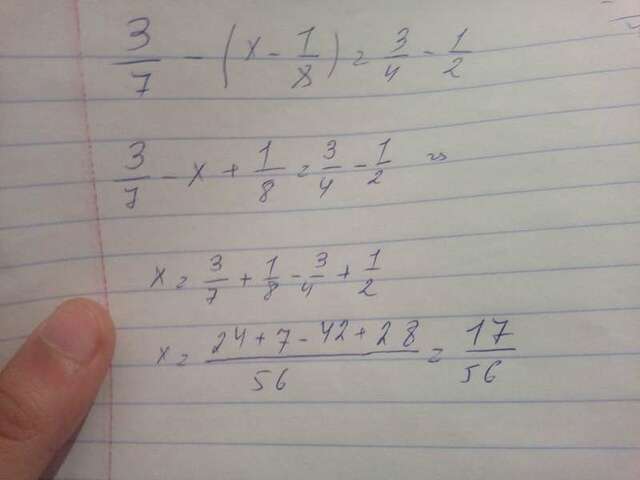 3/7 - (x - 1/8) = 3/4 - 1/2
3/7 - x + 1/8 = 3/4 - 1/2 =>
x = 3/7 + 1/8 - 3/4 + 1/2
x = (24+7-42+28)/56 = 17/56